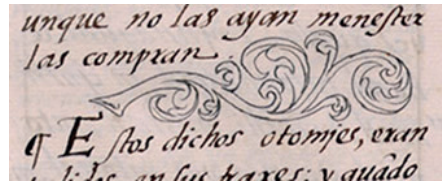 unque no las ayan menester
las compran
¶ Estos dichos otomjes, eran
en sus traxes: y quãdo